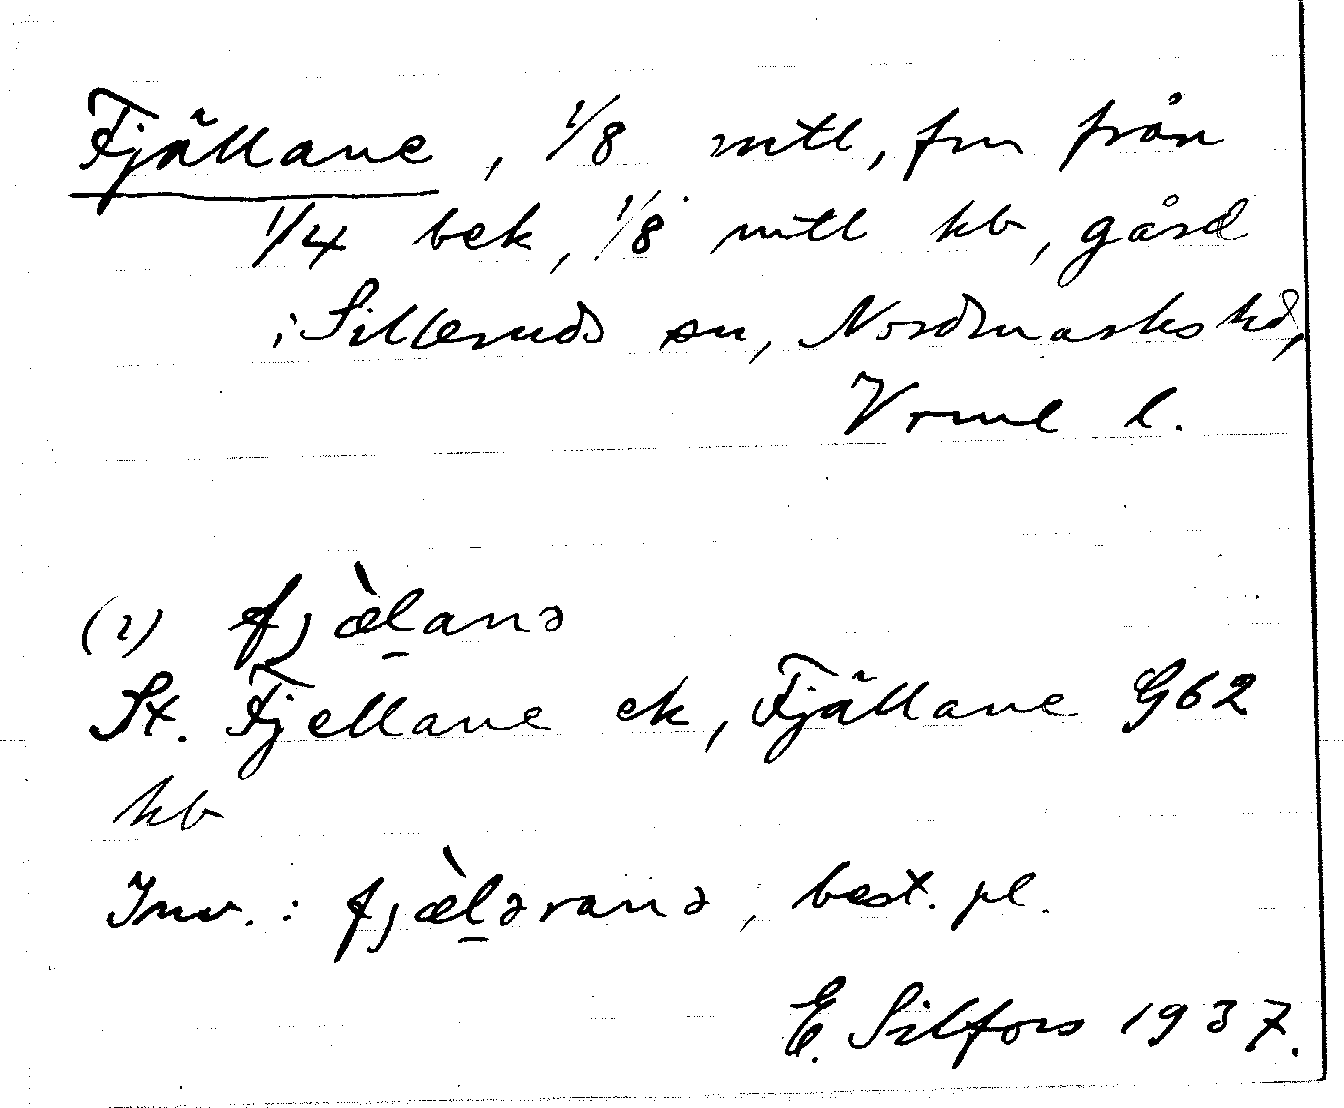 Fjällane, 1/8 mtl, fm från
1/4 bek, 1/8 mtl kb, gård
i Silleruds sn, Nordmarks hd,
Vrml l.
(2) fjæ̀l̠anə
St. Fjellane ek, Fjällane G62
kb
Inv.: fjæ̀l̠əranə, best. pl.
E. Silfors 1937.